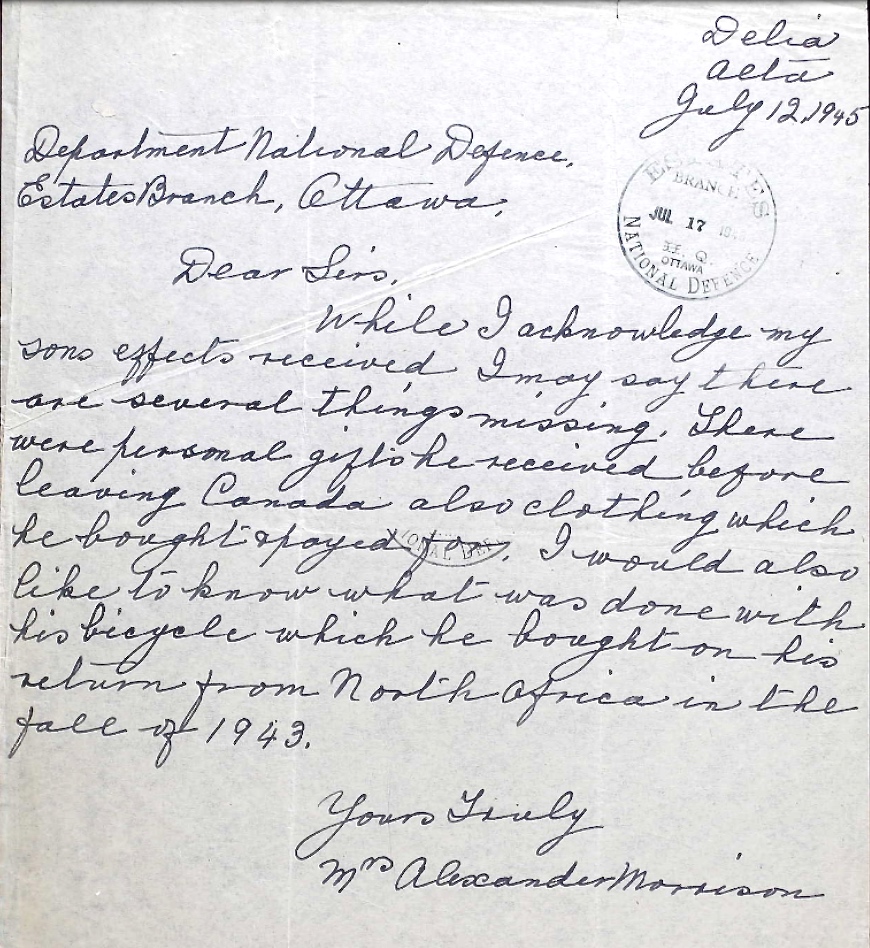 Delia
Alta
July 12, 1945
Department National Defence,
Estates Branch, Ottawa,
ESTATES
BRANCH
JUL 17
OTTAWA
NATIONAL DEFENCE
Dear Sirs,
While I acknowledge my
sons effects received I may say there
are several things missing. There
were personal gifts he received before
leaving Canada also clothing which
he bought & payed for. I would also
like to know what was done with
his bicycle which he bought on his
return from North Africa in the
fall of 1943.
Yours Truly
Mrs Alexander Morrison